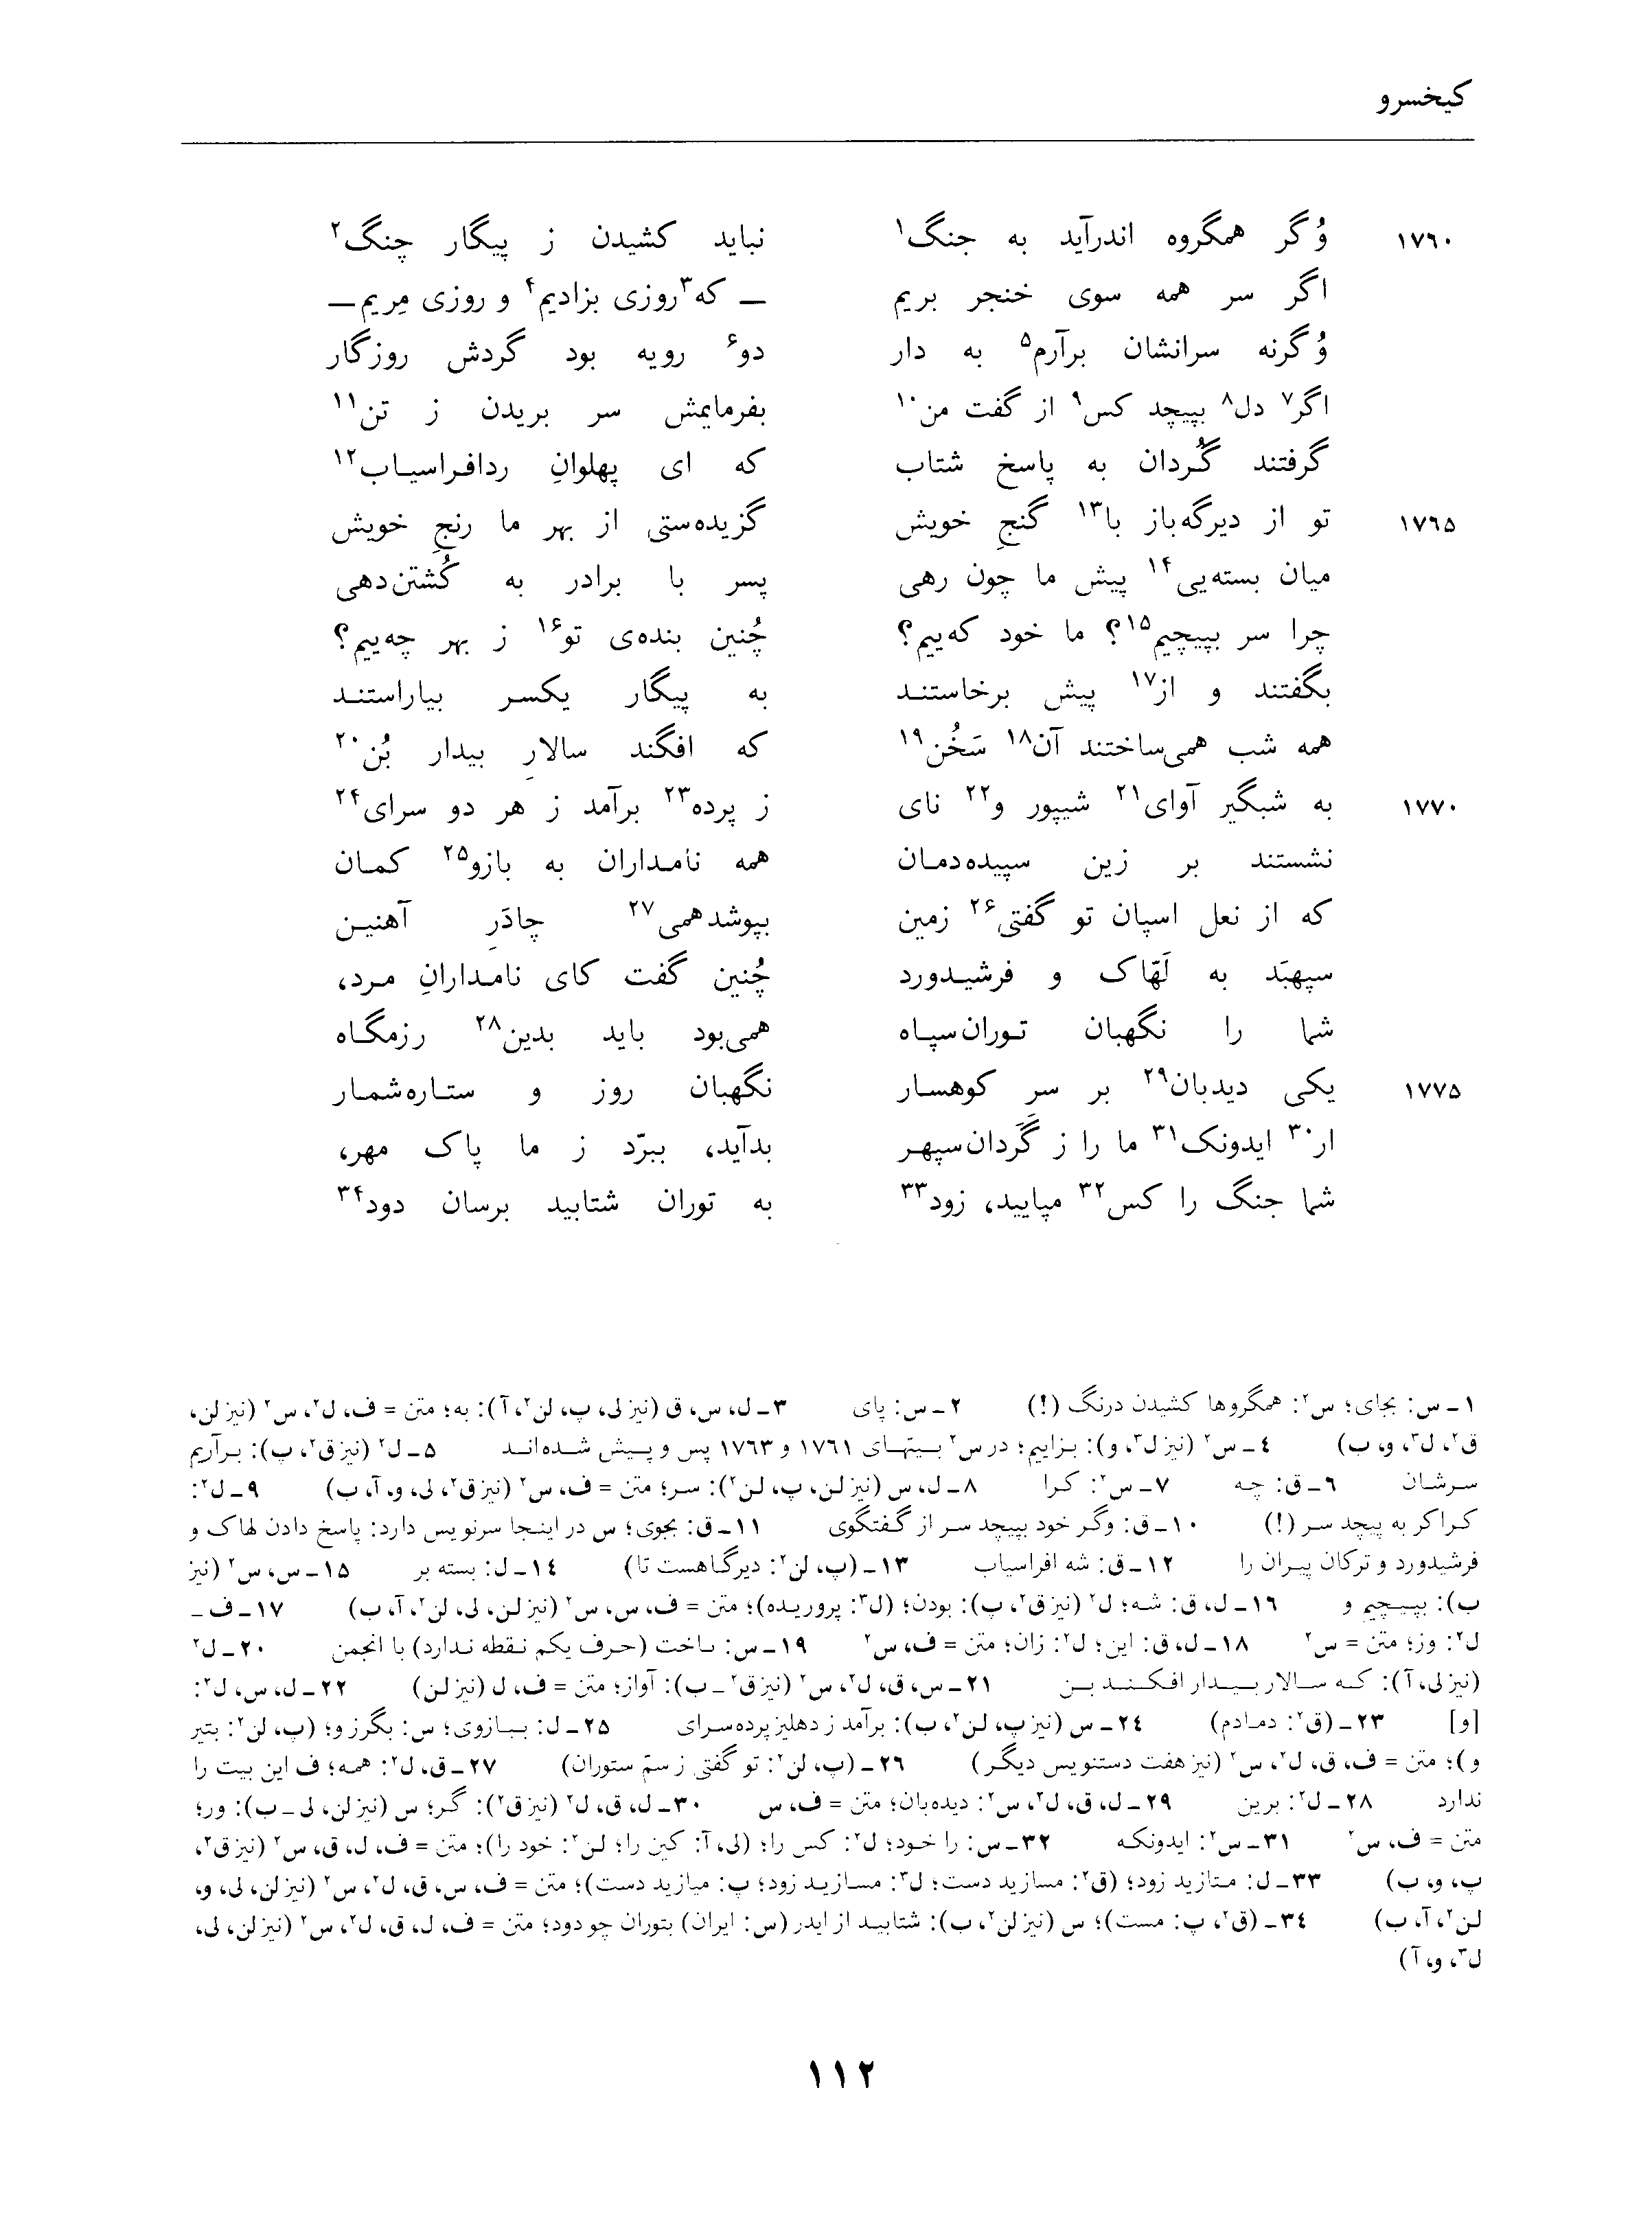 کیخسرو
۱۷٦۰ وُ گر همگروه اندرآید به جنگ۱ نباید کشیدن ز پیگار چنگ۲
اگر سر همه سوی خنجر بریم ــ که۳ روزی بزادیم۴ و روزی مِریم ــ
وُ گرنه سرانشان برآرم۵ به دار دو۶ رویه بود گردش روزگار
اگر۷ دل۸ بپیچد کس۹ از گفت من۱۰ بفرمایمش سر بریدن ز تن۱۱
گرفتند گُردان به پاسخ شتاب که ای پهلوانِ ردافراسیاب۱۲
۱۷٦۵ تو از دیرگه‌باز با۱۳ گنجِ خویش گزیده‌ستی از بهر ما رنجِ خویش
میان بسته‌یی۱۴ پیش ما چون رهی پسر با برادر به کُشتن‌دهی
چرا سر بپیچیم۱۵؟ ما خود که‌ییم؟ چُنین بنده‌ی تو۱۶ ز بهر چه‌ییم؟
بگفتند و از۱۷ پیش برخاستند به پیگار یکسر بیاراستند
همه شب همی‌ساختند آن۱۸ سَخُن۱۹ که افگند سالارِ بیدار بُن۲۰
۱۷۷۰ به شبگیر آوای۲۱ شیپور و۲۲ نای ز پرده۲۳ برآمد ز هر دو سرای۲۴
نشستند بر زین سپیده‌دمان همه نامداران به بازو۲۵ کمان
که از نعل اسپان تو گفتی۲۶ زمین بپوشد همی۲۷ چادَرِ آهنین
سپهبَد به لَهّاک و فرشیدورد چُنین گفت کای نامدارانِ مرد،
شما را نگهبان توران‌سپاه همی‌بود باید بدین۲۸ رزمگاه
۱۷۷۵ یکی دیدبان۲۹ بر سر کوهسار نگهبان روز و ستاره‌شمار
ار۳۰ ایدونک۳۱ ما را ز گَردان‌سپهر بدآید، ببرّد ز ما پاک مهر،
شما جنگ را کس۳۲ مپایید، زود۳۳ به توران شتابید برسان دود۳۴
۱ـ س: بجای؛ س۲: همگروها کشیدن درنگ (!) ۲ـ س: پای ۳ـ ل، س، ق (نیز لی، پ، لن۲، آ): به؛ متن = ف، ل۲، س۲ (نیز لن،
ق۲، ل۳، و، ب) ٤ـ س۲ (نیز ل۳، و): بزاییم؛ در س۲ بیتهای ۱۷٦۱ و ۱۷٦۳ پس و پیش شده‌اند ۵ـ ل۲ (نیز ق۲، ب): برآریم
سرشان ٦ـ ق: چه ۷ـ س۲: کرا ۸ـ ل، س (نیز لن، پ، لن۲): سر؛ متن = ف، س۲ (نیز ق۲، لی، و، آ، ب) ۹ـ ل۲:
کراکر به پیچد سر (!) ۱۰ـ ق: وگر خود بپیچد سر از گفتگوی ۱۱ـ ق: بجوی؛ س در اینجا سرنویس دارد: پاسخ دادن لهاک و
فرشیدورد و ترکان پیران را ۱۲ـ ق: شه افراسیاب ۱۳ـ (پ، لن۲: دیرگاهست تا) ۱٤ـ ل: بسته بر ۱۵ـ س، س۲ (نیز
ب): بپیچیم و ۱٦ـ ل، ق: شه؛ ل۲ (نیز ق۲، پ): بودن؛ (ل۳: پروریده)؛ متن = ف، س، س۲ (نیز لن، لی، لن۲، آ، ب) ۱۷ـ ف ـ
ل۲: وز؛ متن = س۲ ۱۸ـ ل، ق: این؛ ل۲: زان؛ متن = ف، س۲ ۱۹ـ س: ساخت (حرف یکم نقطه ندارد) با انجمن ۲۰ـ ل۲
(نیز لی، آ): که سالار بیدار افکند بن ۲۱ـ س، ق، ل۲، س۲ (نیز ق۲ ـ ب): آواز؛ متن = ف، ل (نیز لن) ۲۲ـ ل، س، ل۲:
[و] ۲۳ـ (ق۲: دمادم) ۲٤ـ س (نیز پ، لن۲، ب): برآمد ز دهلیز پرده‌سرای ۲۵ـ ل: ببازوی؛ س: بگرز و؛ (پ، لن۲: بتیر
و)؛ متن = ف، ق، ل۲، س۲ (نیز هفت دستنویس دیگر) ۲٦ـ (پ، لن۲: تو گفتی ز سمّ ستوران) ۲۷ـ ق، ل۲: همه؛ ف این بیت را
ندارد ۲۸ـ ل۲: برین ۲۹ـ ل، ق، ل۲، س۲: دیده‌بان؛ متن = ف، س ۳۰ـ ل، ق، ل۲ (نیز ق۲): گر؛ س (نیز لن، لی ـ ب): ور؛
متن = ف، س۲ ۳۱ـ س۲: ایدونکه ۳۲ـ س: را خود؛ ل۲: کس را؛ (لی، آ: کین را؛ لن۲: خود را)؛ متن = ف، ل، ق، س۲ (نیز ق۲،
پ، و، ب) ۳۳ـ ل: متازید زود؛ (ق۲: مسازید دست؛ ل۳: مسازید زود؛ پ: میازید دست)؛ متن = ف، س، ق، ل۲، س۲ (نیز لن، لی، و،
لن۲، آ، ب) ۳٤ـ (ق۲، پ: مست)؛ س (نیز لن۲، ب): شتابید از ایدر (س: ایران) بتوران چو دود؛ متن = ف، ل، ق، ل۲، س۲ (نیز لن، لی،
ل۳، و، آ)
۱۱۲